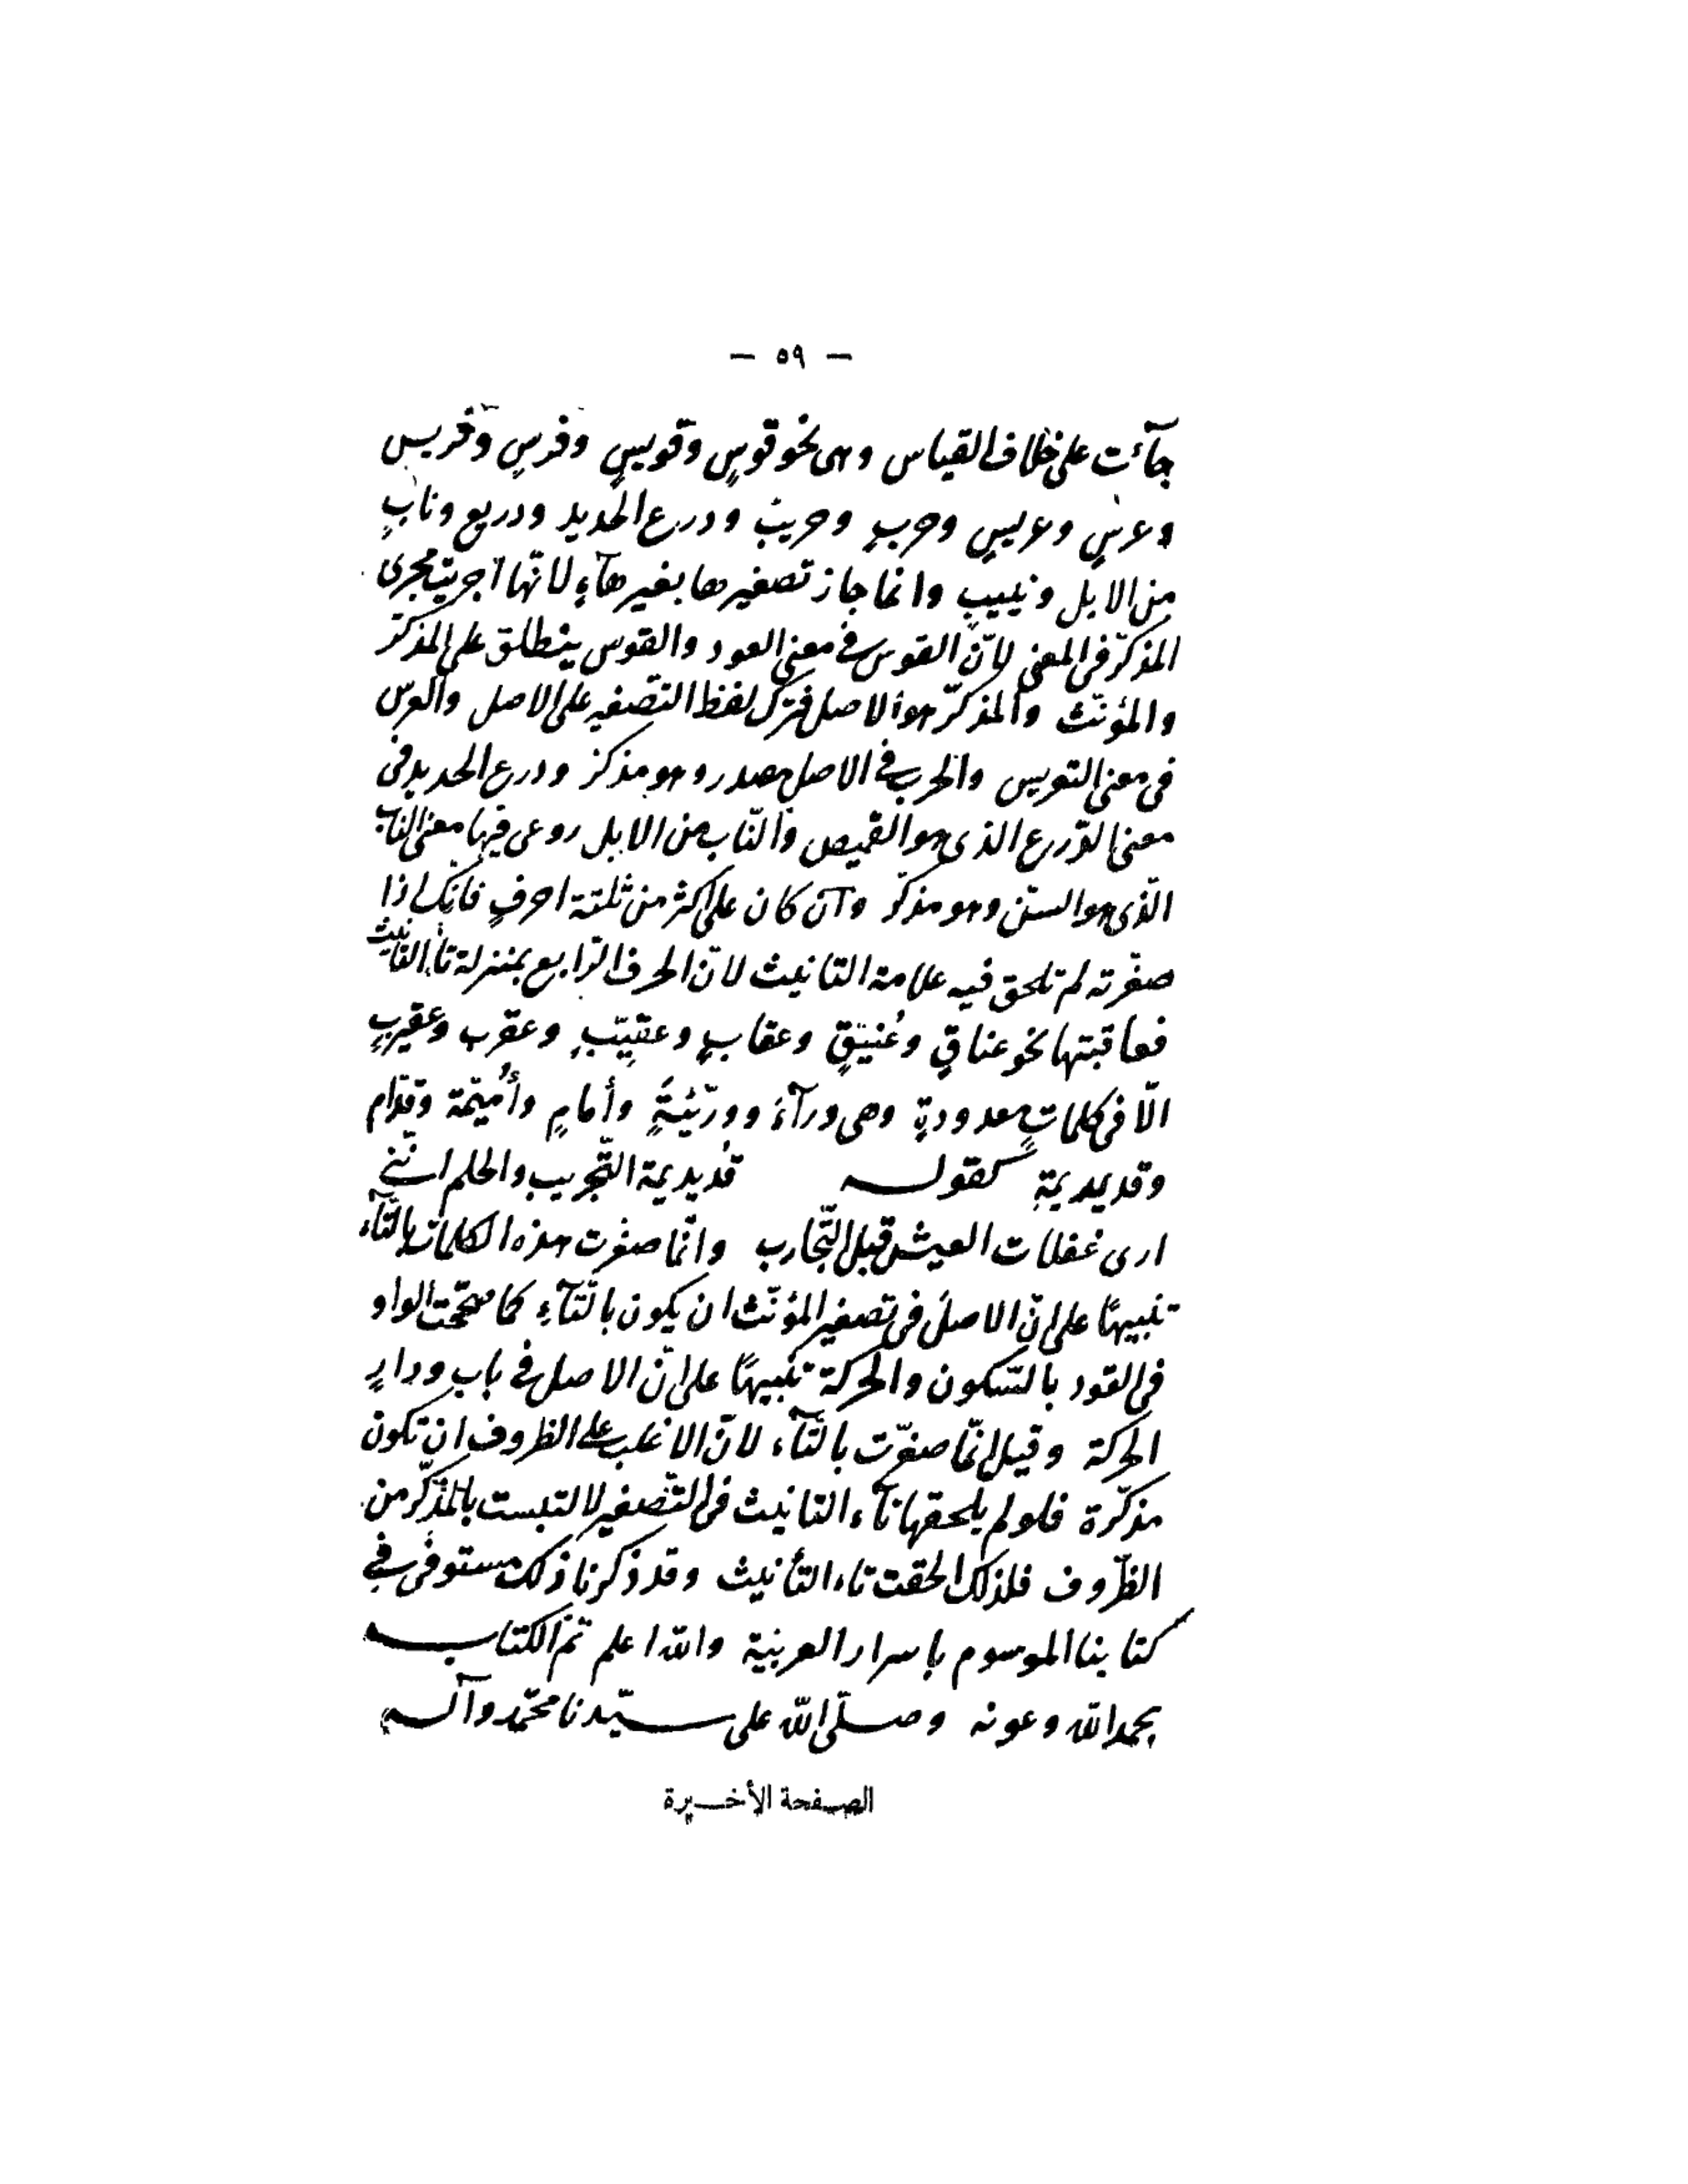 — ٥٩ —
جآءت على خلاف القياس وهى نحو قوسٍ وقويسٍ وفرسٍ وفريس
وعرسٍ وعريسٍ وحربٍ وحريبٌ ودرع الحديد ودريع ونابٍ
من الابل ونييبٍ وانما جاز تصغيرها بغير هآءٍ لانّها اجريت مجرى
المذكّر فى المعنى لانّ القوس فى معنى العود والقوس ينطلق على المذكّر
والمؤنّث والمذكّر هو الاصل فترك لفظ التصغير على الاصل والعرس
فى معنى التعريس والحرب فى الاصل مصدر وهو مذكر ودرع الحديد فى
معنى الدّرع الذى هو القميص والنّاب من الابل روعى فيها معنى الناب
الّذى هو السنّ وهو مذكّر وان كان على اكثر من ثلثة احرفٍ فانّك اذا
صغّرته لم تلحق فيه علامة التانيث لانّ الحرف الرّابع بمنزلة تآء التانيث
فعاقبتها نحو عناقٍ وعُنيّقٍ وعقابٍ وعقيّبٍ وعقرب وعقيربٍ
الّا فى كلماتٍ معدودةٍ وهى ورآءَ ووريّئةٍ وأمامٍ وأُميّمة وقدّام
وقديديمةٍ كقوله قديديمة التّجريب والحلم انّنى
ارى غفلات العيش قبل التّجارب وانّما صغّرت هذه الكلمات بالتّآء
تنبيهًا على انّ الاصل فى تصغير المؤنّث ان يكون بالتّآءِ كما صحّحت الواو
فى القود بالسّكون والحركة تنبيهًا على انّ الاصل فى بابٍ ودارٍ
الحركة وقيل انّما صغّرت بالتّآء لانّ الاغلب على الظروف ان تكون
مذكّرة فلو لم يلحقها تآء التانيث فى التّصغير لالتبست بالمذكّر من
الظّروف فلذلك الحقت تاء التأنيث وقد ذكرنا ذلك مستوفى فى
كتابنا الموسوم باسرار العربيّة والله اعلم تمّ الكتاب
بحمد الله وعونه وصلّى الله على سيّدنا محمّد وآله
الصفحة الأخيرة